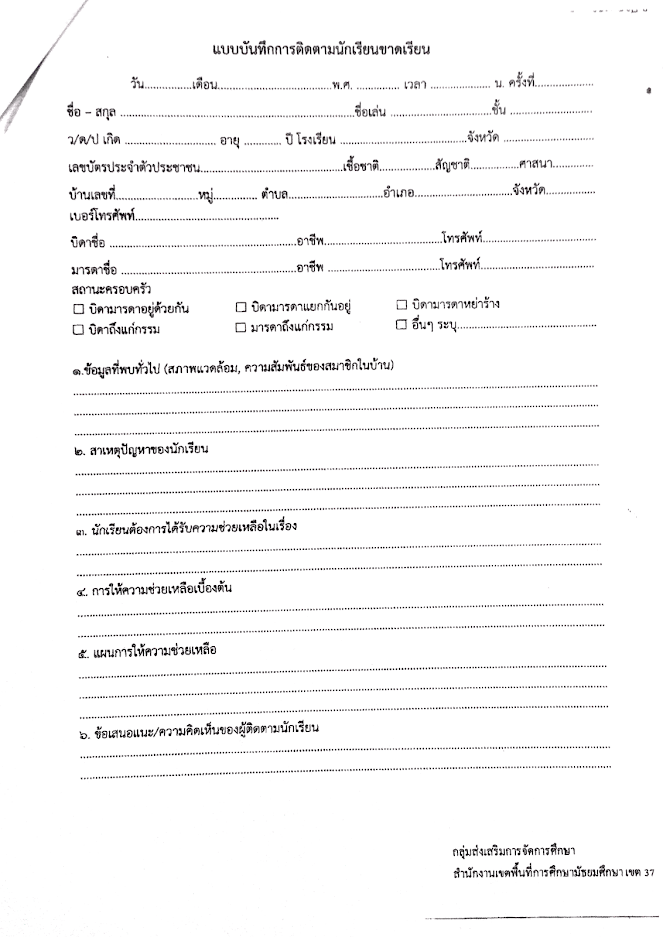 แบบบันทึกการติดตามนักเรียนขาดเรียน
วัน................เดือน......................................พ.ศ. .............. เวลา .................... น. ครั้งที่....................
ชื่อ – สกุล ..............................................................................ชื่อเล่น ...................................ชั้น ............................
ว/ด/ป เกิด ............................... อายุ ............. ปี โรงเรียน ...........................................จังหวัด ...............................
เลขบัตรประจำตัวประชาชน................................................เชื้อชาติ...................สัญชาติ..................ศาสนา..............
บ้านเลขที่............................หมู่............... ตำบล................................อำเภอ.................................จังหวัด.................
เบอร์โทรศัพท์................................................
บิดาชื่อ ...............................................................อาชีพ........................................โทรศัพท์.......................................
มารดาชื่อ ...........................................................อาชีพ .......................................โทรศัพท์.......................................
สถานะครอบครัว
☐ บิดามารดาอยู่ด้วยกัน ☐ บิดามารดาแยกกันอยู่ ☐ บิดามารดาหย่าร้าง
☐ บิดาถึงแก่กรรม ☐ มารดาถึงแก่กรรม ☐ อื่นๆ ระบุ...............................................
๑.ข้อมูลที่พบทั่วไป (สภาพแวดล้อม, ความสัมพันธ์ของสมาชิกในบ้าน)
๒. สาเหตุปัญหาของนักเรียน
๓. นักเรียนต้องการได้รับความช่วยเหลือในเรื่อง
๔. การให้ความช่วยเหลือเบื้องต้น
๕. แผนการให้ความช่วยเหลือ
๖. ข้อเสนอแนะ/ความคิดเห็นของผู้ติดตามนักเรียน
กลุ่มส่งเสริมการจัดการศึกษา
สำนักงานเขตพื้นที่การศึกษามัธยมศึกษา เขต 37